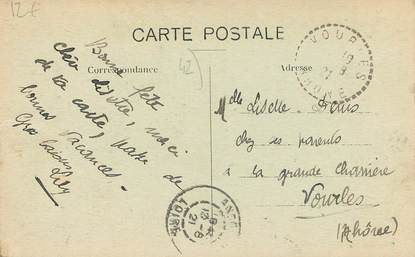 12 €
CARTE POSTALE
Correspondance
Adresse
42
Bonne fête
chère Liseltte, merci
de ta carte, passe de
bonnes vacances.
Gros baisers
Lily
Melle Liselle
chez ses parents
à la grande charrière
Vourles
(Rhône)
VOURLES
RHONE
LOIRE
13-8
21